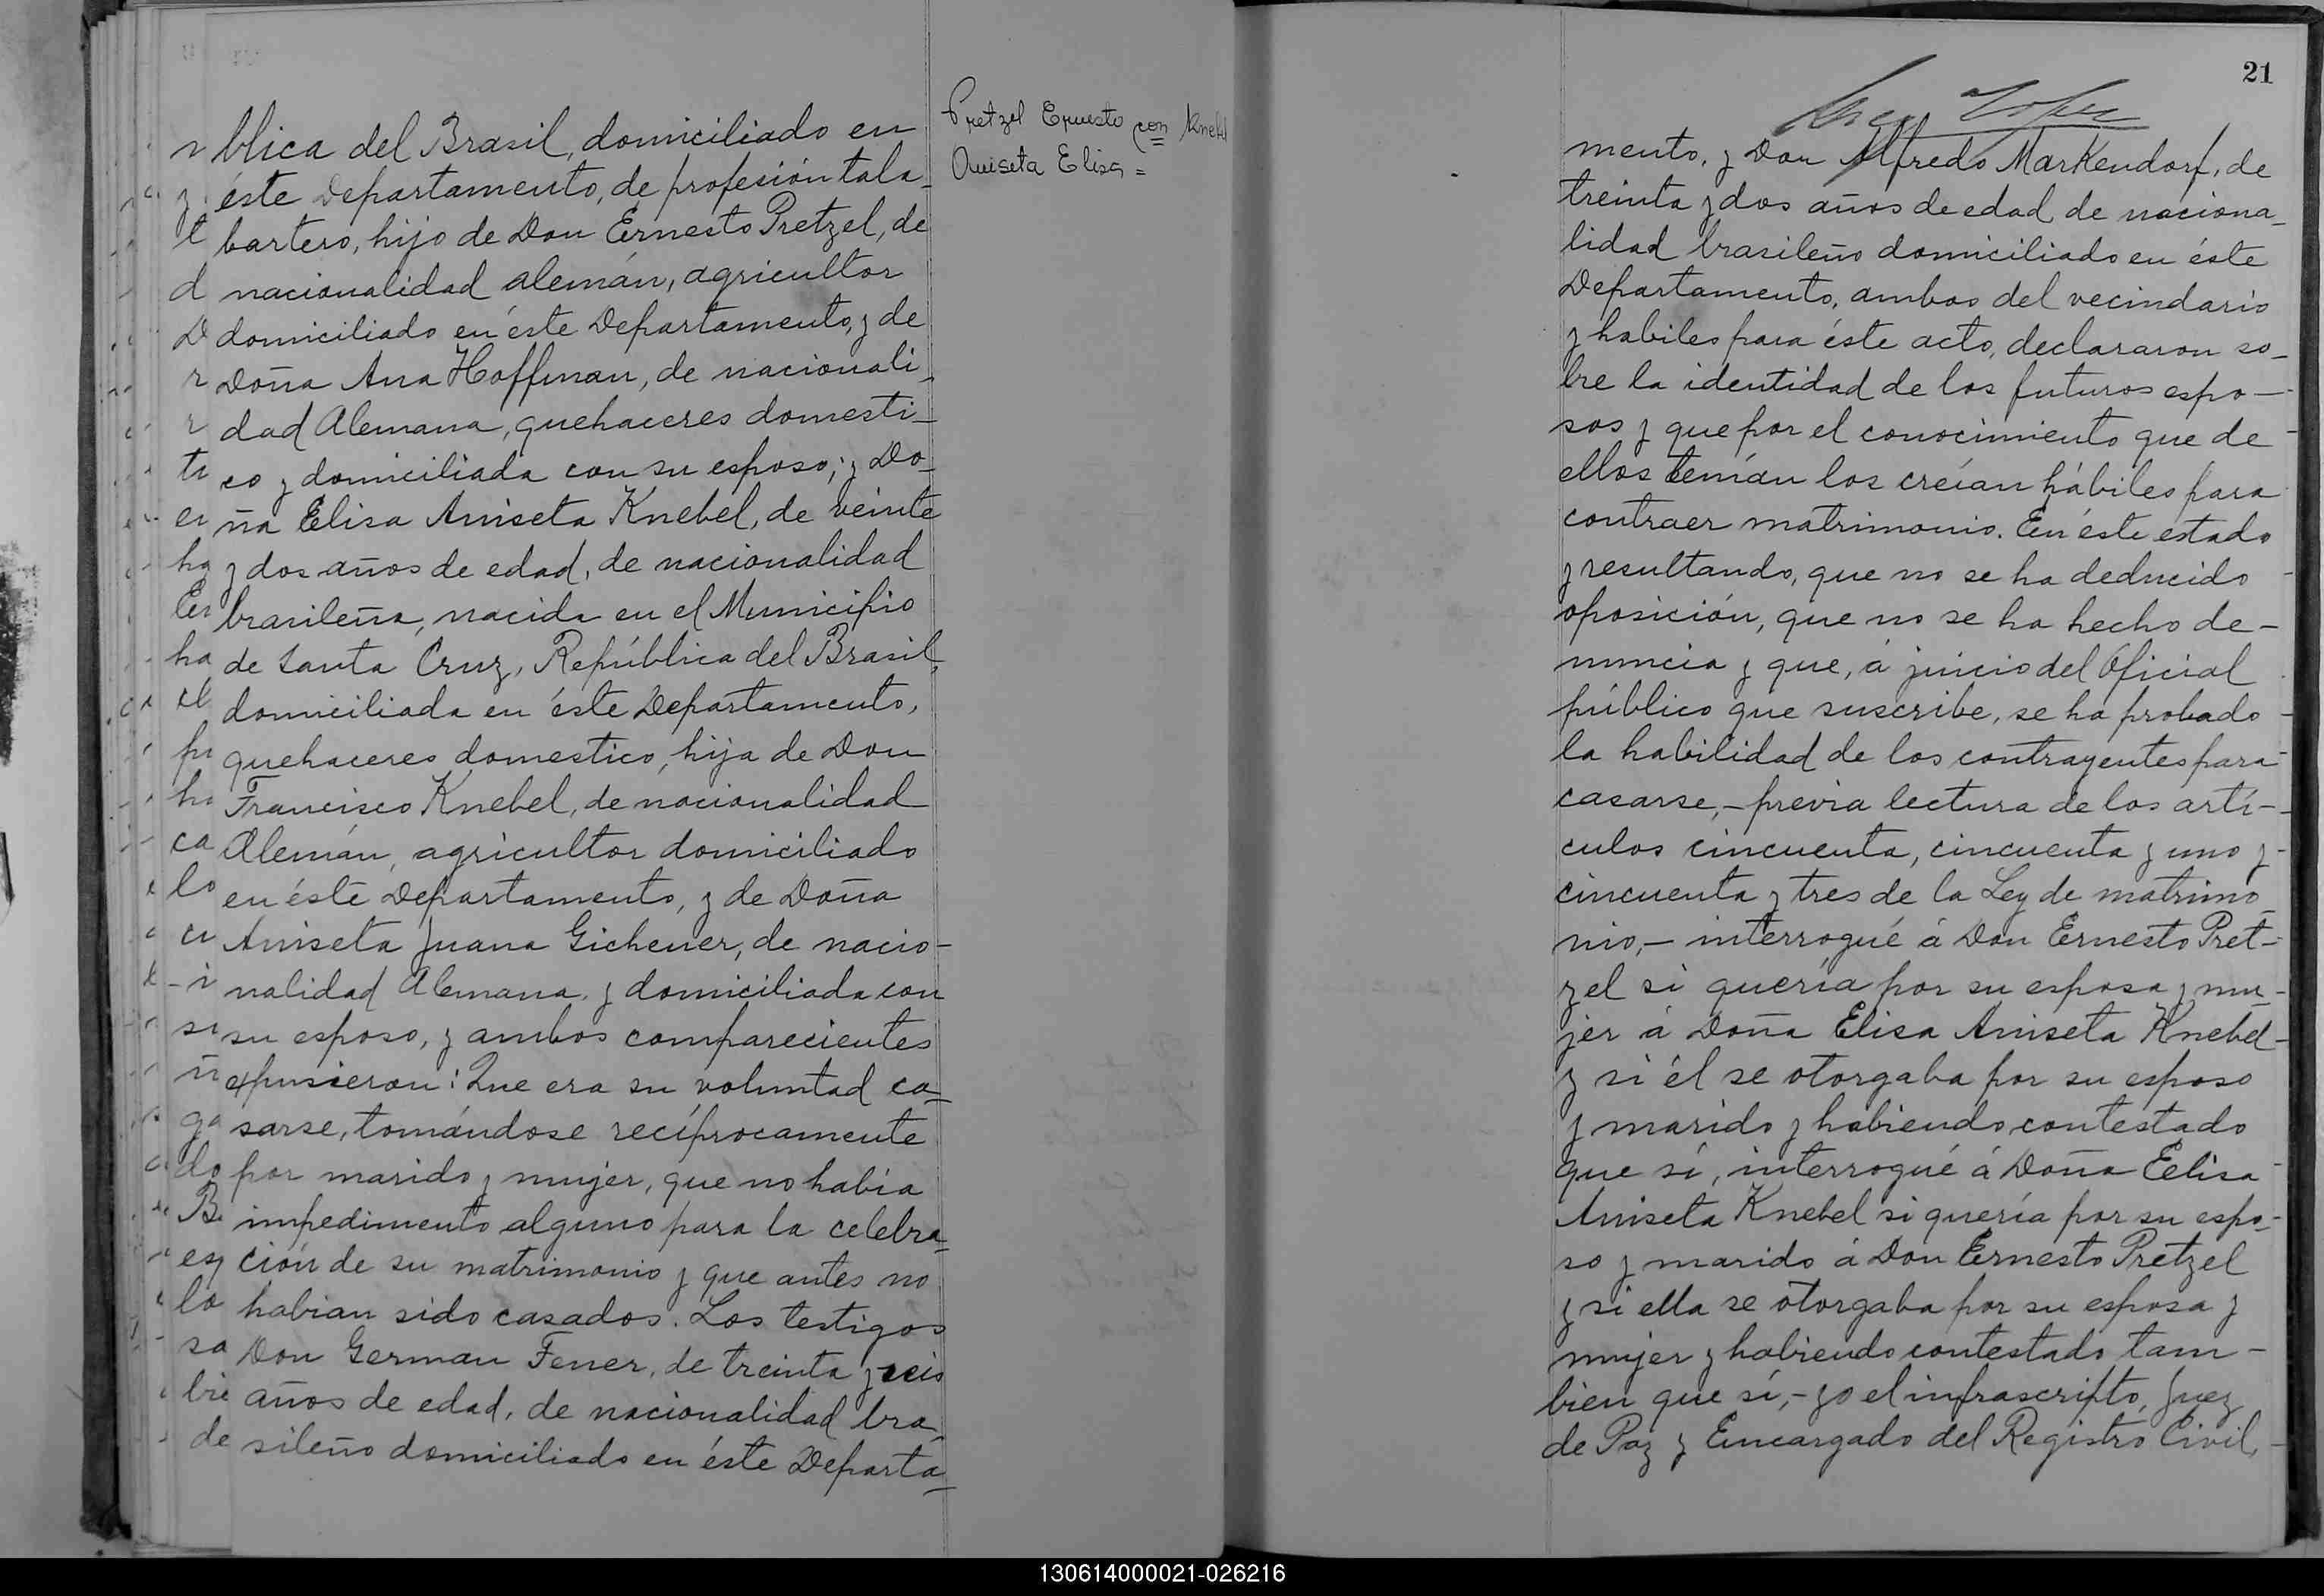 blica del Brasil, domiciliado en
éste Departamento, de profesión tala-
bartero, hijo de Don Ernesto Pretzel, de
nacionalidad alemán, agricultor
domiciliado en éste Departamento, y de
Doña Ana Hoffman, de nacionali-
dad Alemana, quehaceres domesti-
co y domiciliada con su esposo; y Do-
ña Elisa Aniseta Knebel, de veinte
y dos años de edad, de nacionalidad
brasileña, nacida en el Municipio
de Santa Cruz, República del Brasil,
domiciliada en éste Departamento,
quehaceres domestico, hija de Don
Francisco Knebel, de nacionalidad
Alemán, agricultor domiciliado
en éste Departamento, y de Doña
Aniseta Juana Gichener, de nacio-
nalidad Alemana y domiciliada con
su esposo, y ambos comparecientes
expusieron: Que era su voluntad ca=
sarse, tomándose recíprocamente
por marido y mujer, que no había
impedimento alguno para la celebra=
ción de su matrimonio y que antes no
habian sido casados. Los testigos
Don German Fener, de treinta y seis
años de edad, de nacionalidad bra-
sileño domiciliado en éste Departa=
Pretzel Ernesto con Knebel
Aniseta Elisa =
21
mento, y Don Alfredo Markendorf, de
treinta y dos años de edad de naciona-
lidad brasileño domiciliado en éste
Departamento, ambos del vecindario
y habiles para éste acto, declararon so-
bre la identidad de los futuros espo-
sos y que por el conocimiento que de
ellos tenían los creían hábiles para
contraer matrimonio. En éste estado
y resultando, que no se ha deducido
oposición, que no se ha hecho de-
nuncia y que, á juicio del Oficial
público que suscribe, se ha probado
la habilidad de los contrayentes para
casarse, - previa lectura de los artí-
culos cincuenta, cincuenta y uno y
cincuenta y tres de la Ley de matrimo-
nio, - interrogué á Don Ernesto Pret-
zel si quería por su esposa y mu-
jer á Doña Elisa Aniseta Knebel
y si él se otorgaba por su esposo
y marido y habiendo contestado
que sí, interrogué á Doña Eelisa
Aniseta Knebel si quería por su espo-
so y marido á Don Ernesto Pretzel
y si ella se otorgaba por su esposa y
mujer y habiendo contestado tam-
bien que sí, - yo el infrascripto, Juez
de Paz y Encargado del Registro Civil,
130614000021-026216